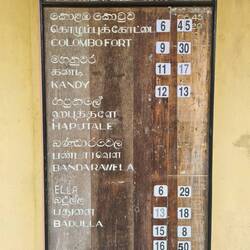 කොළඹ කොටුව 45
கொழும்புக்கோட்டை 6 45
COLOMBO FORT 9 30
මහනුවර
கண்டி 11 17
KANDY 12 13
හපුතලේ
ஹபுத்தளை
HAPUTALE
බණ්ඩාරවෙල
பண்டாரவளை
BANDARAWELA
ELLA 6 29
බදුල්ල
பதுளை 13 18
BADULLA 15 35
16 50